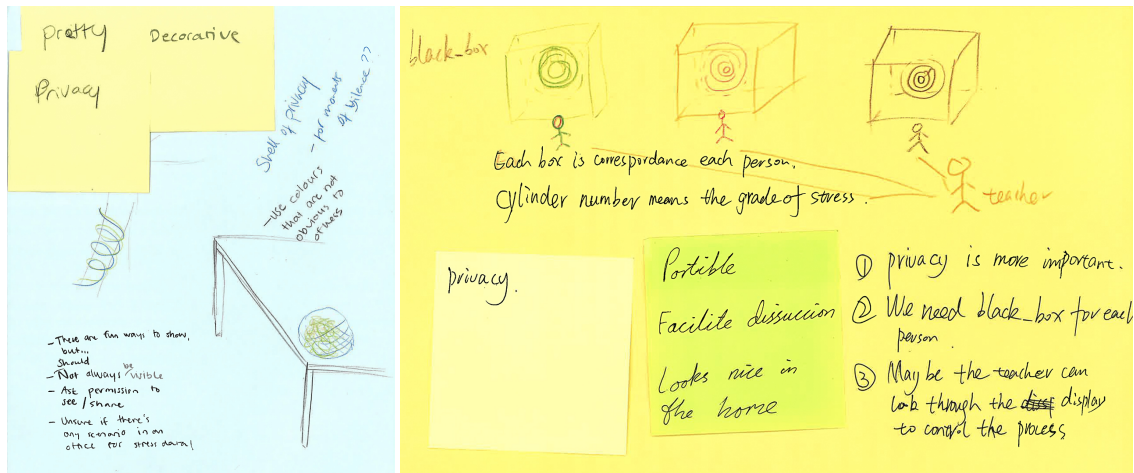 Pretty
Decorative
Privacy
Shell of privacy
- for moments
of silence??
- use colours
that are not
obvious to
others
- There are fun ways to show,
but...
should
- Not always be visible
- Ask permission to
see / share
- Unsure if there's
any scenario in an
office for stress data!
black_box
Each box is correspordance each person.
Cylinder number means the grade of stress.
teacher
privacy.
Portible
Facilite dissuccion
Looks nice in
the home
① privacy is more important.
② We need black_box for each
person.
③ May be the teacher can
look through the display
to control the process